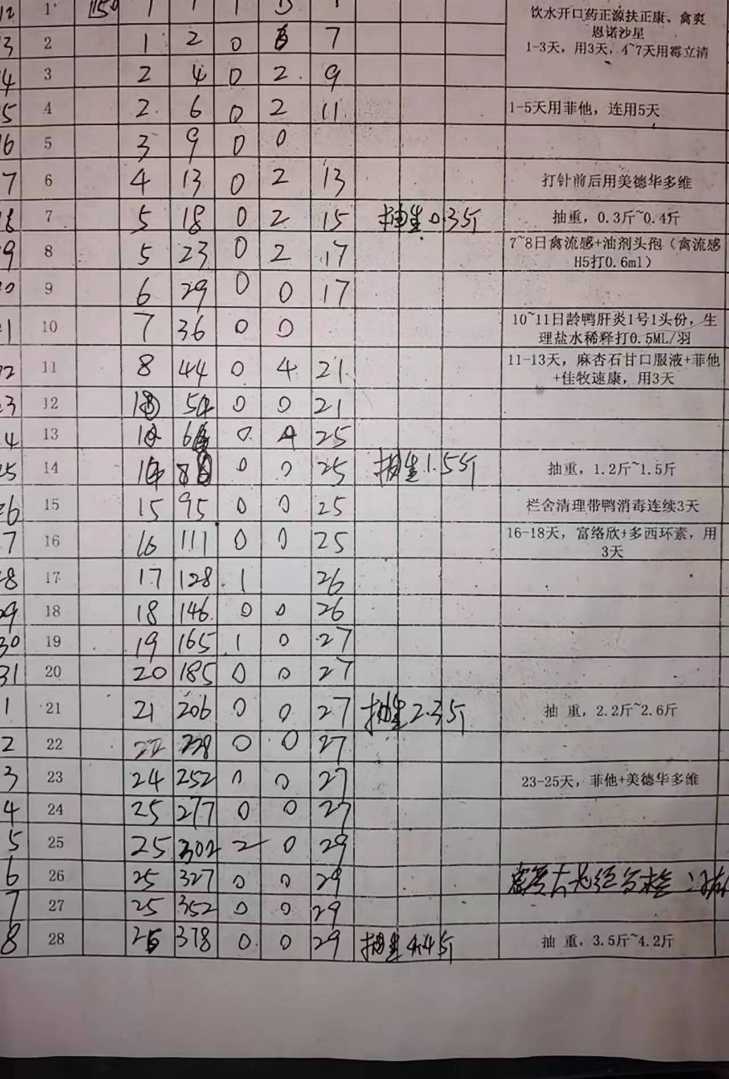 12 1 1150 1 1 1 5 饮水开口药正源扶正康、禽爽
恩诺沙星
1-3天，用3天，4~7天用霉立清
3 2 1 2 0 7
4 3 2 4 0 2 9
5 4 2 6 0 2 11 1-5天用菲他，连用5天
6 5 3 9 0 0
7 6 4 13 0 2 13 打针前后用美德华多维
8 7 5 18 0 2 15 抽生0.35斤 抽重，0.3斤~0.4斤
9 8 5 23 0 2 17 7~8日禽流感+油剂头孢（禽流感
H5打0.6ml）
0 9 6 29 0 0 17
1 10 7 36 0 0 10~11日龄鸭肝炎1号1头份，生
理盐水稀释打0.5ML/羽
2 11 8 44 0 4 21 11-13天，麻杏石甘口服液+菲他
+佳牧速康，用3天
3 12 0 0 21
4 13 0 4 25
5 14 0 0 25 抽生1.5斤 抽重，1.2斤~1.5斤
26 15 15 95 0 0 25 栏舍清理带鸭消毒连续3天
7 16 16 111 0 0 25 16-18天，富络欣+多西环素，用
3天
28 17 17 128 1 26
29 18 18 146 0 0 26
30 19 19 165 1 0 27
31 20 20 185 0 0 27
1 21 21 206 0 0 27 抽生2.3斤 抽 重，2.2斤~2.6斤
2 22 22 228 0 0 27
3 23 24 252 0 0 27 23-25天，菲他+美德华多维
4 24 25 277 0 0 27
5 25 25 302 2 0 29
6 26 25 327 0 0 29
7 27 25 352 0 0 29
8 28 26 378 0 0 29 抽生4.4斤 抽 重，3.5斤~4.2斤